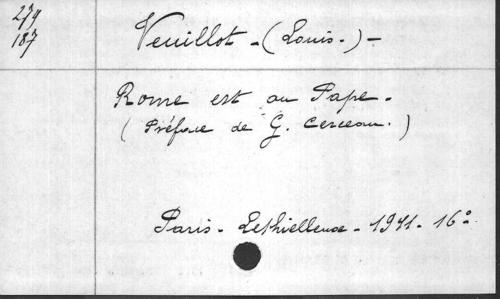 279
187
Veuillot - (Louis.) -
Rome est au Pape.
(Préface de G. Cerceau.)
Paris - Lethielleux - 1941. 16°